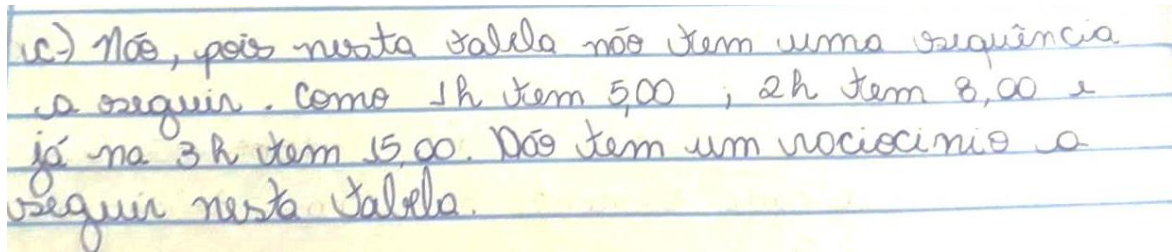 c) Não, pois nesta tabela não tem uma sequência
a seguir. Como 1h tem 5,00 ; 2h tem 8,00 e
já na 3h tem 15,00. Não tem um raciocinio a
seguir nesta tabela.